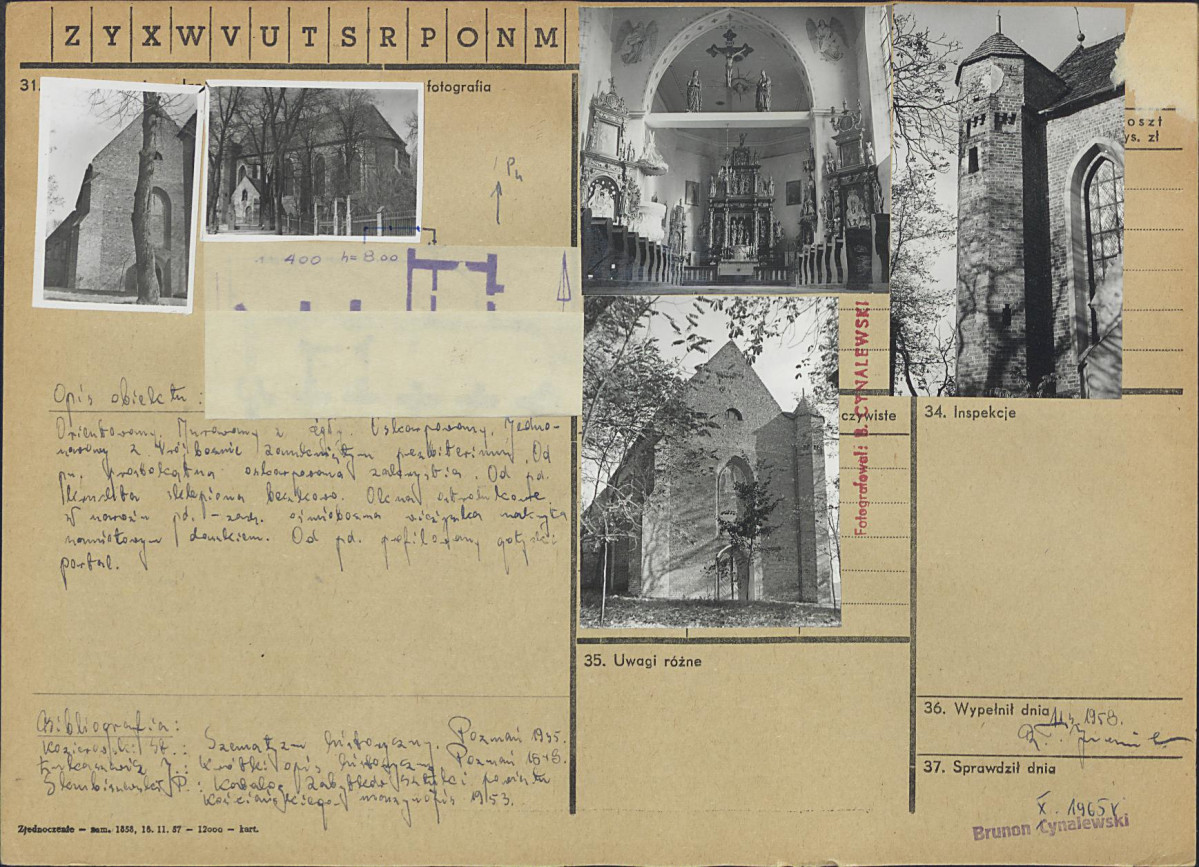 Z Y X W V U T S R P O N M
31.
fotografia
Pn
400 h=8.00
Opis obiektu:
Orientowany. Murowany z cegły. Oskarpowany. Jedno-
nawowy z trójbocznie zamkniętym prezbiterium. Od
pn. prostokątna oskarpowana zakrystia. Od pd.
kruchta sklepiona beczkowo. Okna ostrołukowe.
W narożu pd.-zach. ośmioboczna wieżyczka nakryta
namiotowym daszkiem. Od pd. profilowany gotycki
portal.
Bibliografia:
Kozierowski St.: Szematyzm historyczny. Poznań 1935.
Łukaszewicz J.: Krótki opis historyczny Poznań 1858.
P.: Katalog zabytków sztuki powiatu
Kościańskiego. maszynopis 1953.
Zjednoczenie — zam. 1858, 16. 11. 57 — 12000 — kart.
Fotografował: B. CYNALEWSKI
oszt
ys. zł
czywiste
34. Inspekcje
35. Uwagi różne
36. Wypełnił dnia
1958.
37. Sprawdził dnia
X. 1965 r.
Brunon Cynalewski